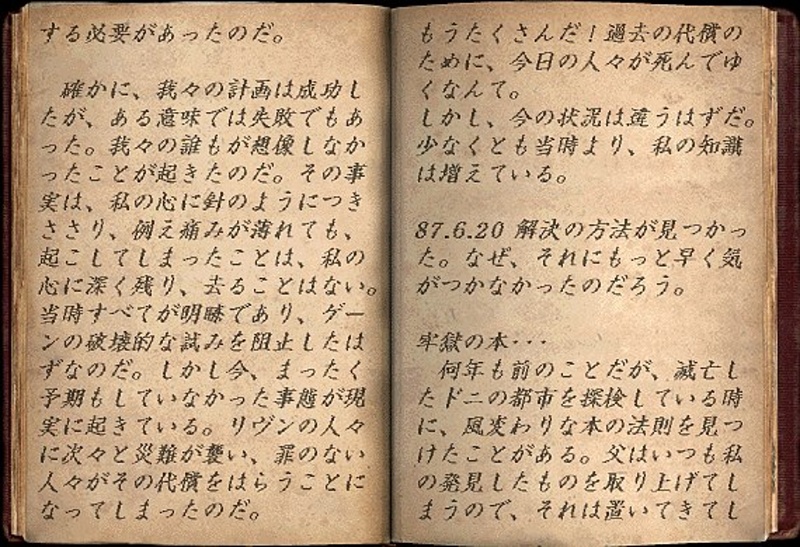 する必要があったのだ。
確かに、我々の計画は成功し
たが、ある意味では失敗でもあ
った。我々の誰もが想像しなか
ったことが起きたのだ。その事
実は、私の心に針のようにつき
ささり、例え痛みが薄れても、
起こしてしまったことは、私の
心に深く残り、去ることはない。
当時すべてが明瞭であり、ゲー
ンの破壊的な試みを阻止したは
ずなのだ。しかし今、まったく
予期もしていなかった事態が現
実に起きている。リヴンの人々
に次々と災難が襲い、罪のない
人々がその代償をはらうことに
なってしまったのだ。
もうたくさんだ！過去の代償の
ために、今日の人々が死んでゆ
くなんて。
しかし、今の状況は違うはずだ。
少なくとも当時より、私の知識
は増えている。
87.6.20 解決の方法が見つかっ
た。なぜ、それにもっと早く気
がつかなかったのだろう。
牢獄の本・・・
何年も前のことだが、滅亡し
たドニの都市を探検している時
に、風変わりな本の法則を見つ
けたことがある。父はいつも私
の発見したものを取り上げてし
まうので、それは置いてきてし